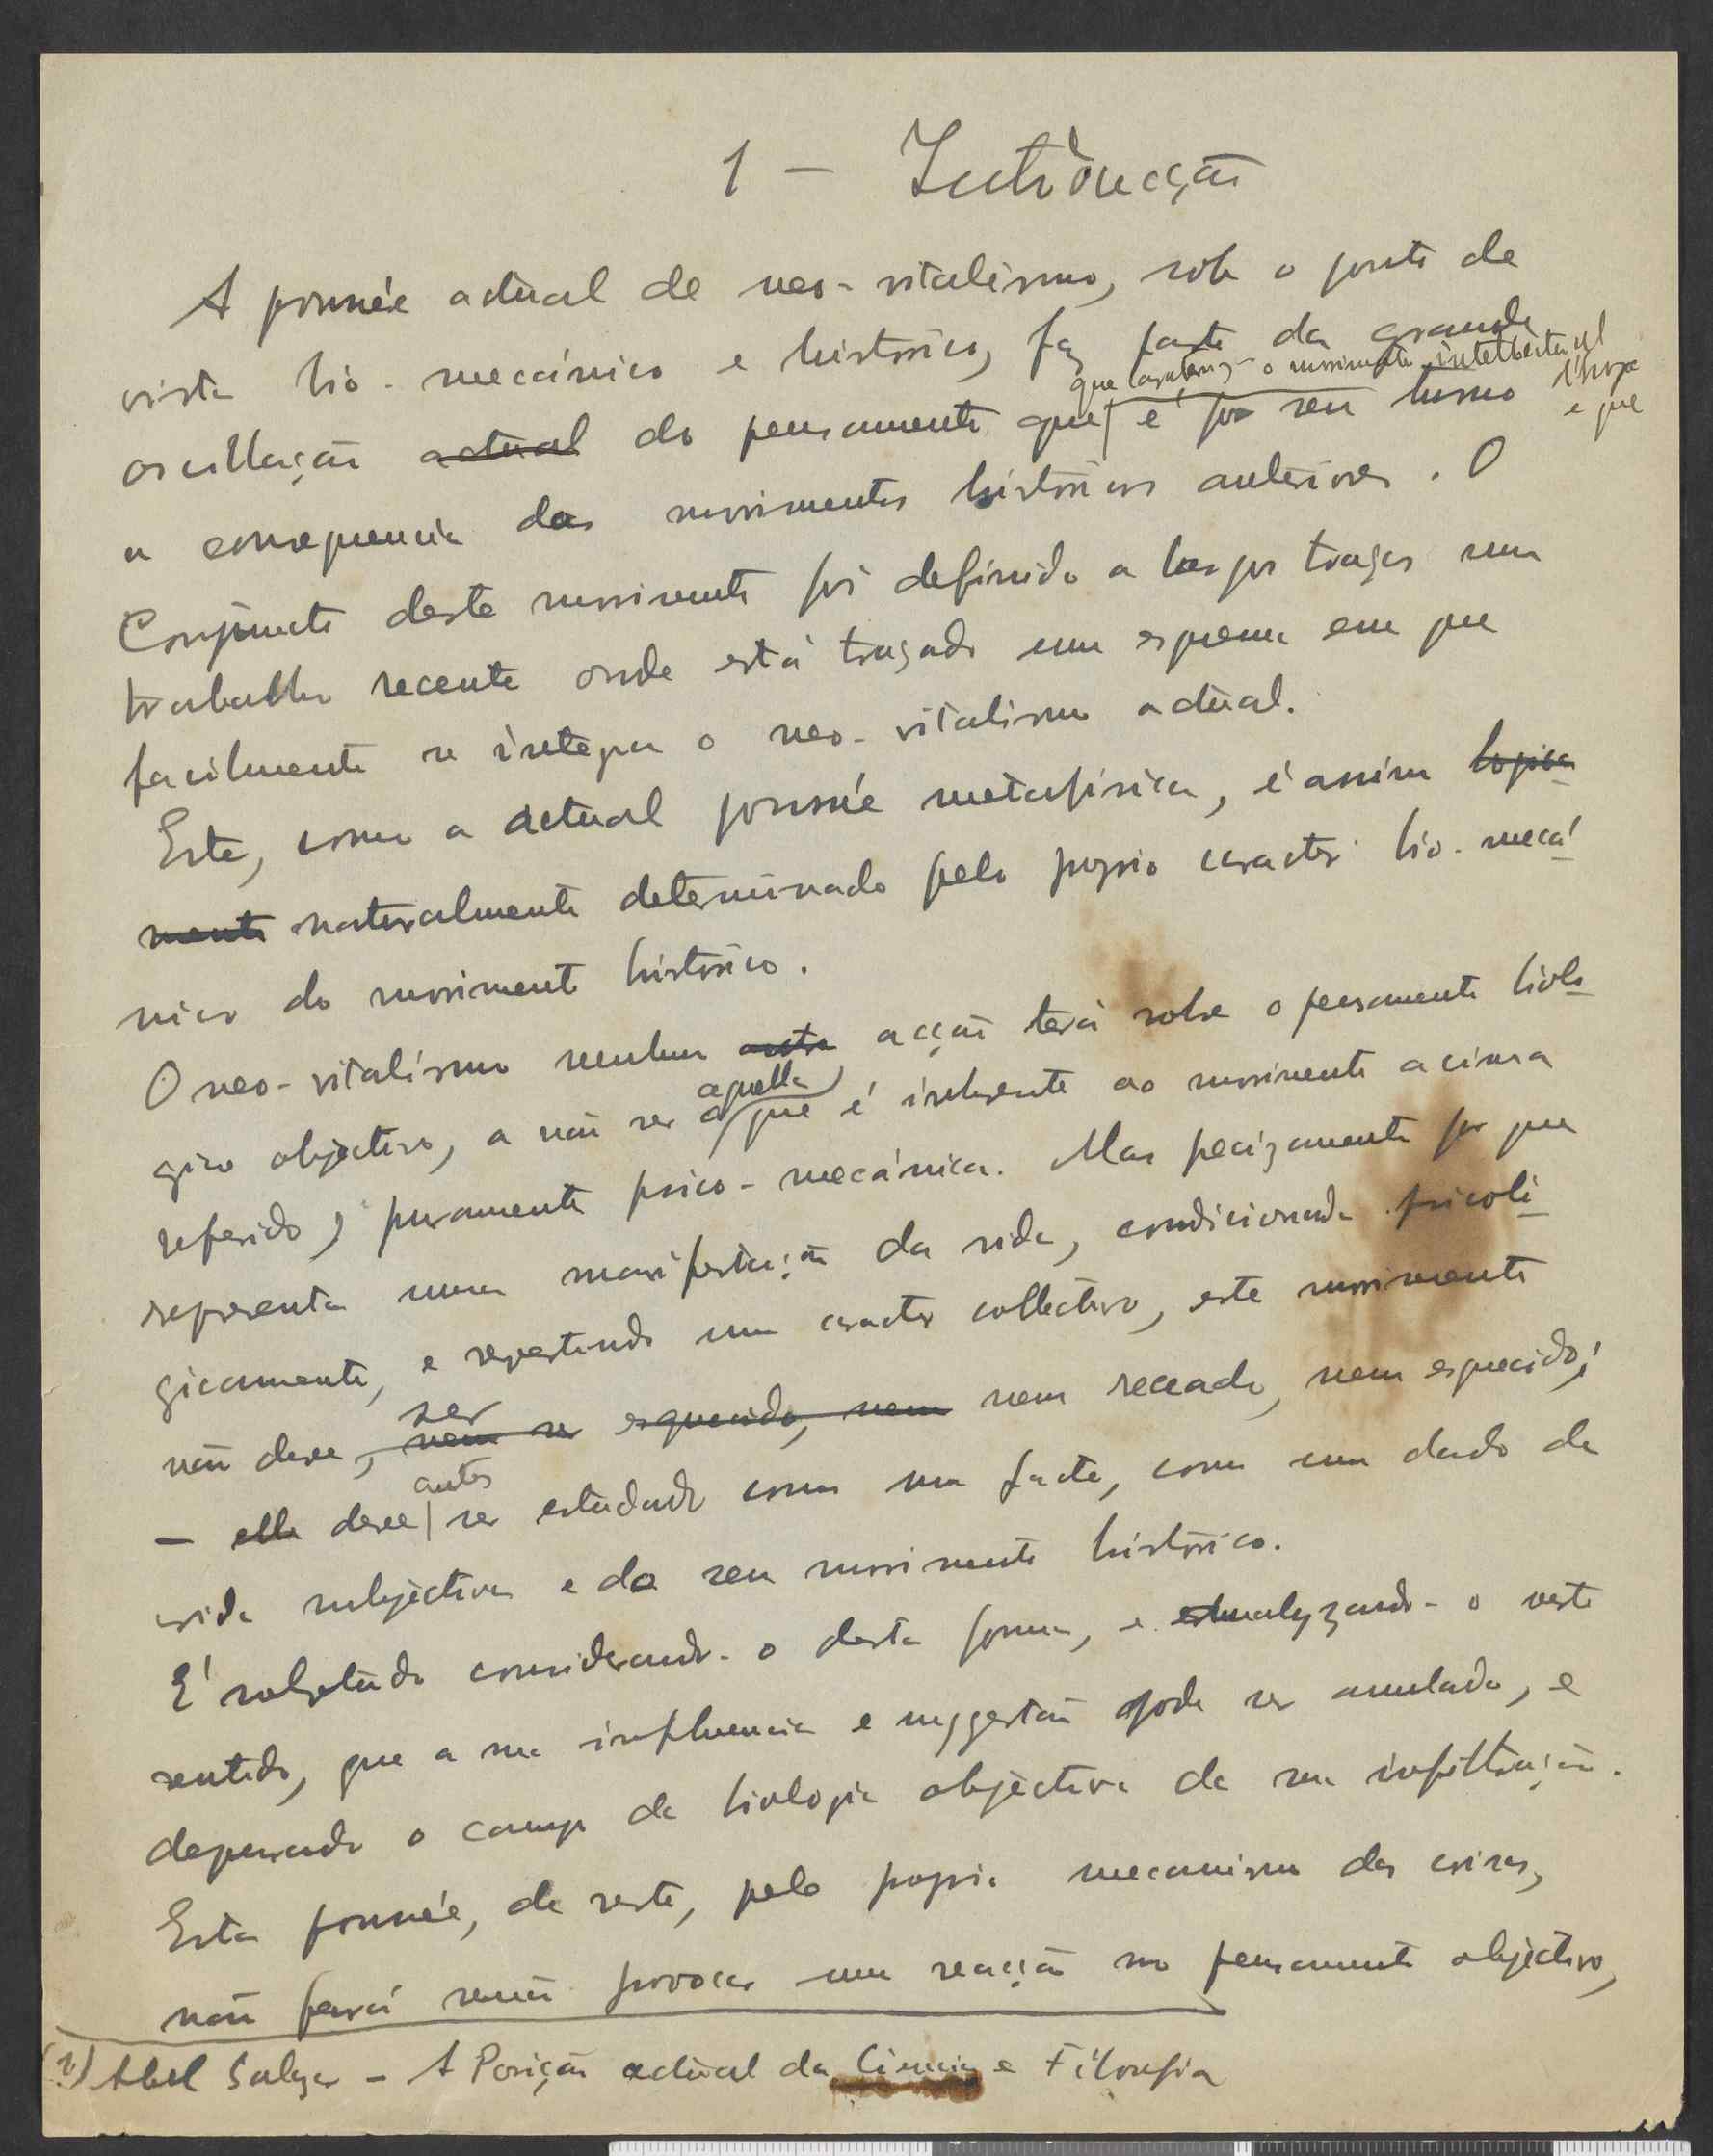 1 – Introducção
A poussée actual de neo-vitalismo, sob o ponto de
vista bio-mecánico e historico, faz parte da grande
que caracteriza o movimento intellectual
oscillação actual do pensamento que é por seu turno
e que
a consequencia dos movimentos históricos anteriores. O
Conjuncto deste movimento foi definido a largos traços num
trabalho recente onde está traçado um esquema em que
facilmente se integra o neo-vitalismo actual.
Este, como a actual poussée metafisica, é assim logica
mente naturalmente determinado pelo proprio caracter bio-mecá
nico do movimento histórico.
O neo-vitalismo nenhuma outra acção terá sobre o pensamento biolo
aquella
gico objectivo, a não ser a que é inherente ao movimento acima
referido, puramente psico-mecánica. Mas precizamente por que
representa uma manifestação da vida, condicionada psicoló
gicamente, e revestindo um caracter collectivo, este movimento
ser
não deve, nem ser esquecido, nem nem receado, nem esquecido;
antes
– elle deve ser estudado como um facto, como um dado da
vida subjectiva e do seu movimento histórico.
É sobretudo considerando-o desta forma, e analyzando-o neste
sentido, que a sua influencia e suggestão pode ser annulada, e
depurado o campo da biologia objectiva da sua infiltração.
Esta poussée, de resto, pelo proprio mecanismo das coisas,
não fará senão provocar uma reacção no pensamento objectivo,
(1) Abel Salazar – A Posição actual da Ciencia e Filosofia